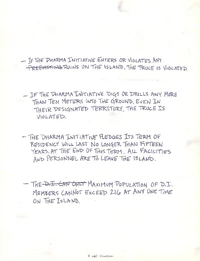 - IF THE DHARMA INITIATIVE ENTERS OR VIOLATES ANY
RUINS ON THE ISLAND, THE TRUCE IS VIOLATED
- IF THE DHARMA INITIATIVE DIGS OR DRILLS ANY MORE
THAN TEN METERS INTO THE GROUND, EVEN IN
THEIR DESIGNATED TERRITORY, THE TRUCE IS
VIOLATED.
- THE DHARMA INITIATIVE PLEDGES ITS TERM OF
RESIDENCY WILL LAST NO LONGER THAN FIFTEEN
YEARS. AT THE END OF THIS TERM, ALL FACILITIES
AND PERSONNEL ARE TO LEAVE THE ISLAND.
- THE D.I. CAN MAXIMUM POPULATION OF D.I.
MEMBERS CANNOT EXCEED 216 AT ANY ONE TIME
ON THE ISLAND.